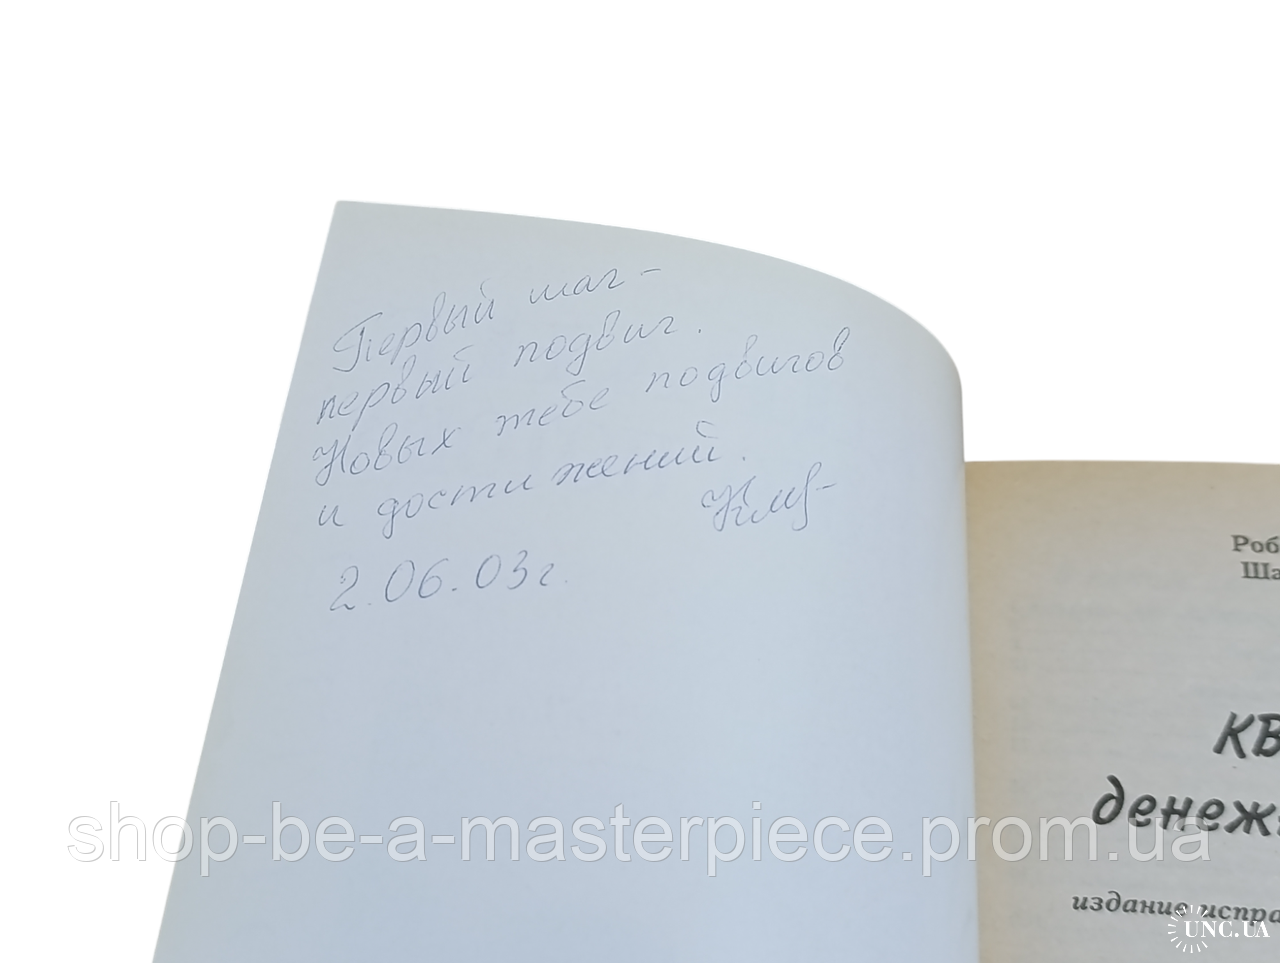 Первый шаг –
первый подвиг.
Новых тебе подвигов
и достижений.
2.06.03г.
Роб
Ша
КВ
денеж
издание испра
shop-be-a-masterpiece.prom.ua
UNC.UA